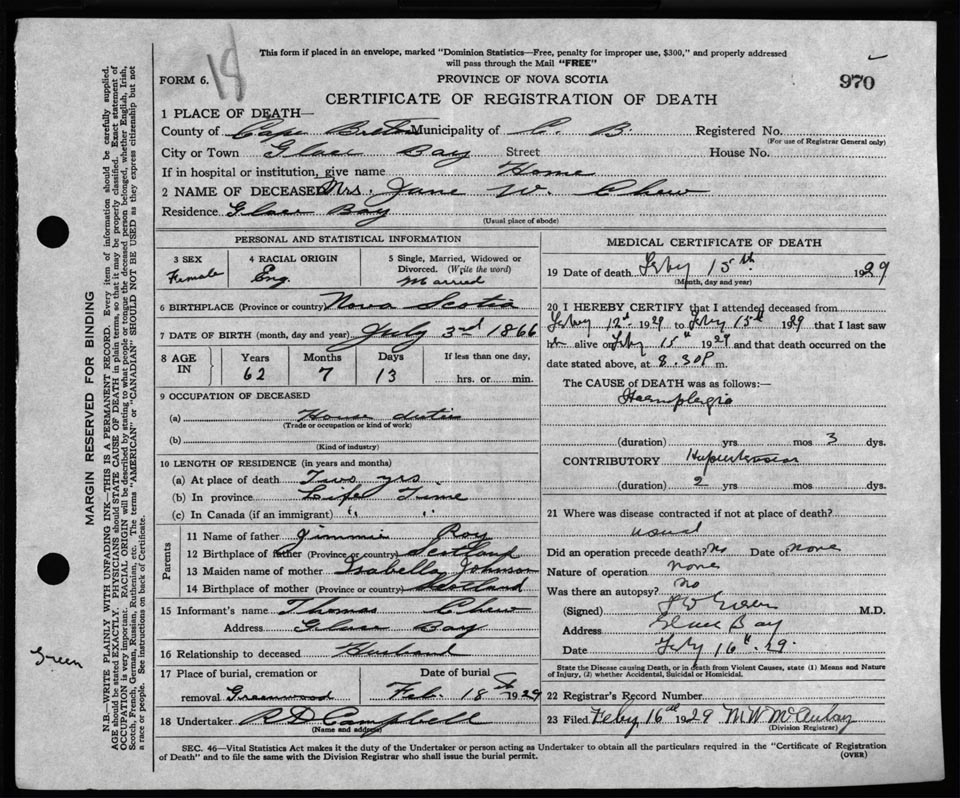 This form if placed in an envelope, marked "Dominion Statistics—Free, penalty for improper use, $300," and properly addressed
will pass through the Mail "FREE"
18
FORM 6.
PROVINCE OF NOVA SCOTIA
970
CERTIFICATE OF REGISTRATION OF DEATH
1 PLACE OF DEATH—
County of Cape Breton Municipality of C. B. Registered No.
(For use of Registrar General only)
City or Town Glace Bay Street House No.
If in hospital or institution, give name Home
2 NAME OF DECEASED Mrs. Jane W. Chew
Residence Glace Bay
(Usual place of abode)
PERSONAL AND STATISTICAL INFORMATION
3 SEX Female
4 RACIAL ORIGIN Eng.
5 Single, Married, Widowed or Divorced. (Write the word) Married
6 BIRTHPLACE (Province or country) Nova Scotia
7 DATE OF BIRTH (month, day and year) July 3rd 1866
8 AGE IN Years Months Days If less than one day,
62 7 13 hrs. or min.
9 OCCUPATION OF DECEASED
(a) House duties
(Trade or occupation or kind of work)
(b)
(Kind of industry)
10 LENGTH OF RESIDENCE (in years and months)
(a) At place of death Two yrs.
(b) In province Life Time
(c) In Canada (if an immigrant) " "
Parents
11 Name of father Jimmie Roy
12 Birthplace of father (Province or country) Scotland
13 Maiden name of mother Isabella Johnson
14 Birthplace of mother (Province or country) Scotland
15 Informant's name Thomas Chew
Address Glace Bay
16 Relationship to deceased Husband
17 Place of burial, cremation or removal Greenwood
Date of burial Feb. 18 1929
18 Undertaker A D Campbell
(Name and address)
MEDICAL CERTIFICATE OF DEATH
19 Date of death Feby 15th 1929
(Month, day and year)
20 I HEREBY CERTIFY that I attended deceased from
Feby 12th 1929 to Feby 15th 1929 that I last saw
alive on Feby 15th 1929 and that death occurred on the
date stated above, at 8.30P m.
The CAUSE of DEATH was as follows:—
Haemplegia
(duration) yrs mos 3 dys.
CONTRIBUTORY Hypertension
(duration) 2 yrs mos dys.
21 Where was disease contracted if not at place of death?
usual
Did an operation precede death? No Date of none
Nature of operation none
Was there an autopsy? no
(Signed) M.D.
Address Glace Bay
Date Feby 16th. 29
State the Disease causing Death, or in death from Violent Causes, state (1) Means and Nature
of Injury, (2) whether Accidental, Suicidal or Homicidal.
22 Registrar's Record Number
23 Filed Feby 16th 1929 M W McAulay
(Division Registrar)
SEC. 46—Vital Statistics Act makes it the duty of the Undertaker or person acting as Undertaker to obtain all the particulars required in the "Certificate of Registration
of Death" and to file the same with the Division Registrar who shall issue the burial permit.
(OVER)
MARGIN RESERVED FOR BINDING
N.B.—WRITE PLAINLY WITH UNFADING INK—THIS IS A PERMANENT RECORD. Every item of information should be carefully supplied.
AGE should be stated EXACTLY. PHYSICIANS should STATE CAUSE OF DEATH in plain terms, so that it may be properly classified. Exact statement of
OCCUPATION is very important. RACIAL ORIGIN will be described by stating to what people or tongue the deceased person belonged, whether English, Irish,
Scotch, French, German, Russian, Ruthenian, etc. The terms "AMERICAN" or "CANADIAN" SHOULD NOT BE USED as they express citizenship but not
a race or people. See instructions on back of Certificate.
Green